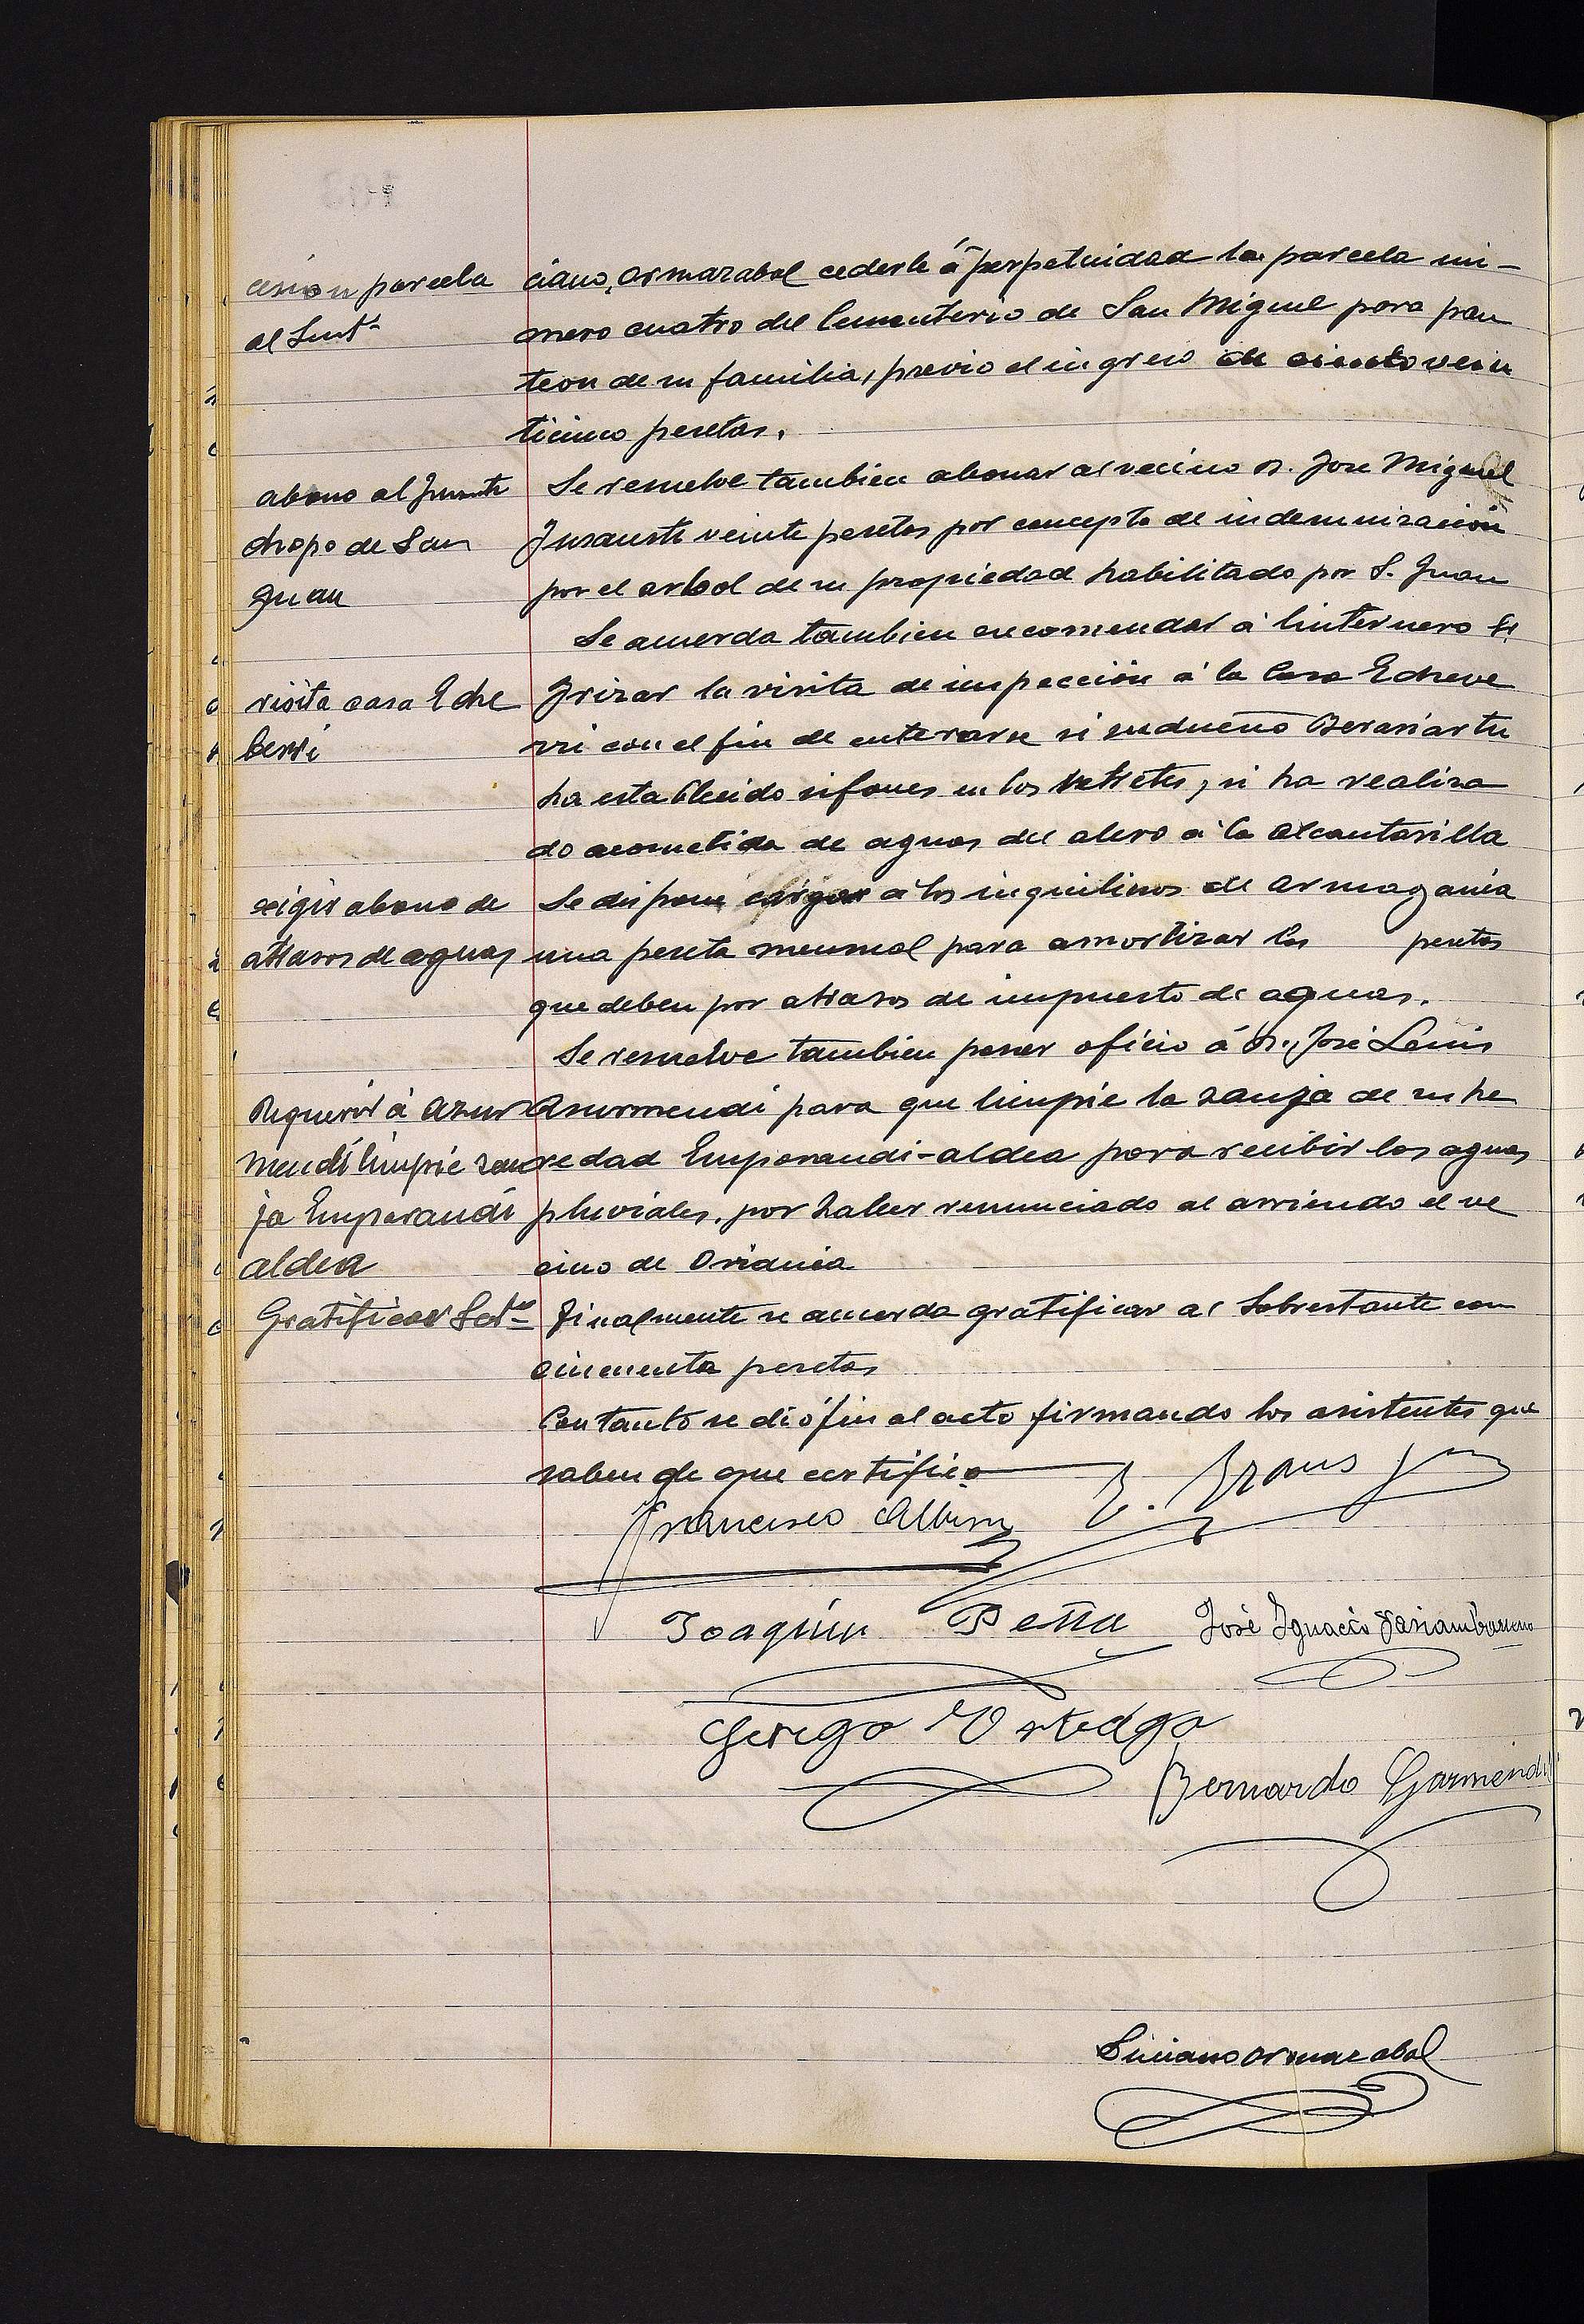 cesion parcela
al Sert.
ciano, Ormazabal cederle á perpetuidad la parcela nú-
mero cuatro del Cementerio de San Miguel para pan
teon de su familia, previo el ingreso de ciento vein
ticinco pesetas.
abono al Insausti
chopo de San
Juan
Se resuelve tambien abonar al vecino D. Jose Miguel
Insausti veinte pesetas por concepto de indemnizacion
por el arbol de su propiedad habilitado por S. Juan
Se acuerda tambien encomendar á linternero Sr
visita casa Eche
berri
Irizar la visita de inspección á la Casa Echeve
rri con el fin de enterarse si su dueño Berasiartu
ha establecido sifones en los retretes, si ha realiza
do acometida de aguas del alero á la alcantarilla
exigir abono de
atrasos de aguas
Se dispone exigir á los inquilinos de armagania
una peseta mensual para amortizar las pesetas
que deben por atrasos de impuesto de aguas.
Se resuelve tambien pasar oficio á D. José Luis
Requerir á Azur
mendi limpie zan
ja Emparandi
aldea
Asurmendi para que limpie la zanja de su he
redad Emparandi-aldea para recibir las aguas
pluviales, por haber renunciado al arriendo el ve
cino de Oriania
Gratificar Sobte
Finalmente se acuerda gratificar al Sobrestante con
cincuenta pesetas
Con tanto se dió fin al acto firmando los asistentes que
saben de que certifico
Francisco Albisu
Joaquin Peña
José Ignacio
Ortega
Bernardo Garmendi
Luciano Ormazabal